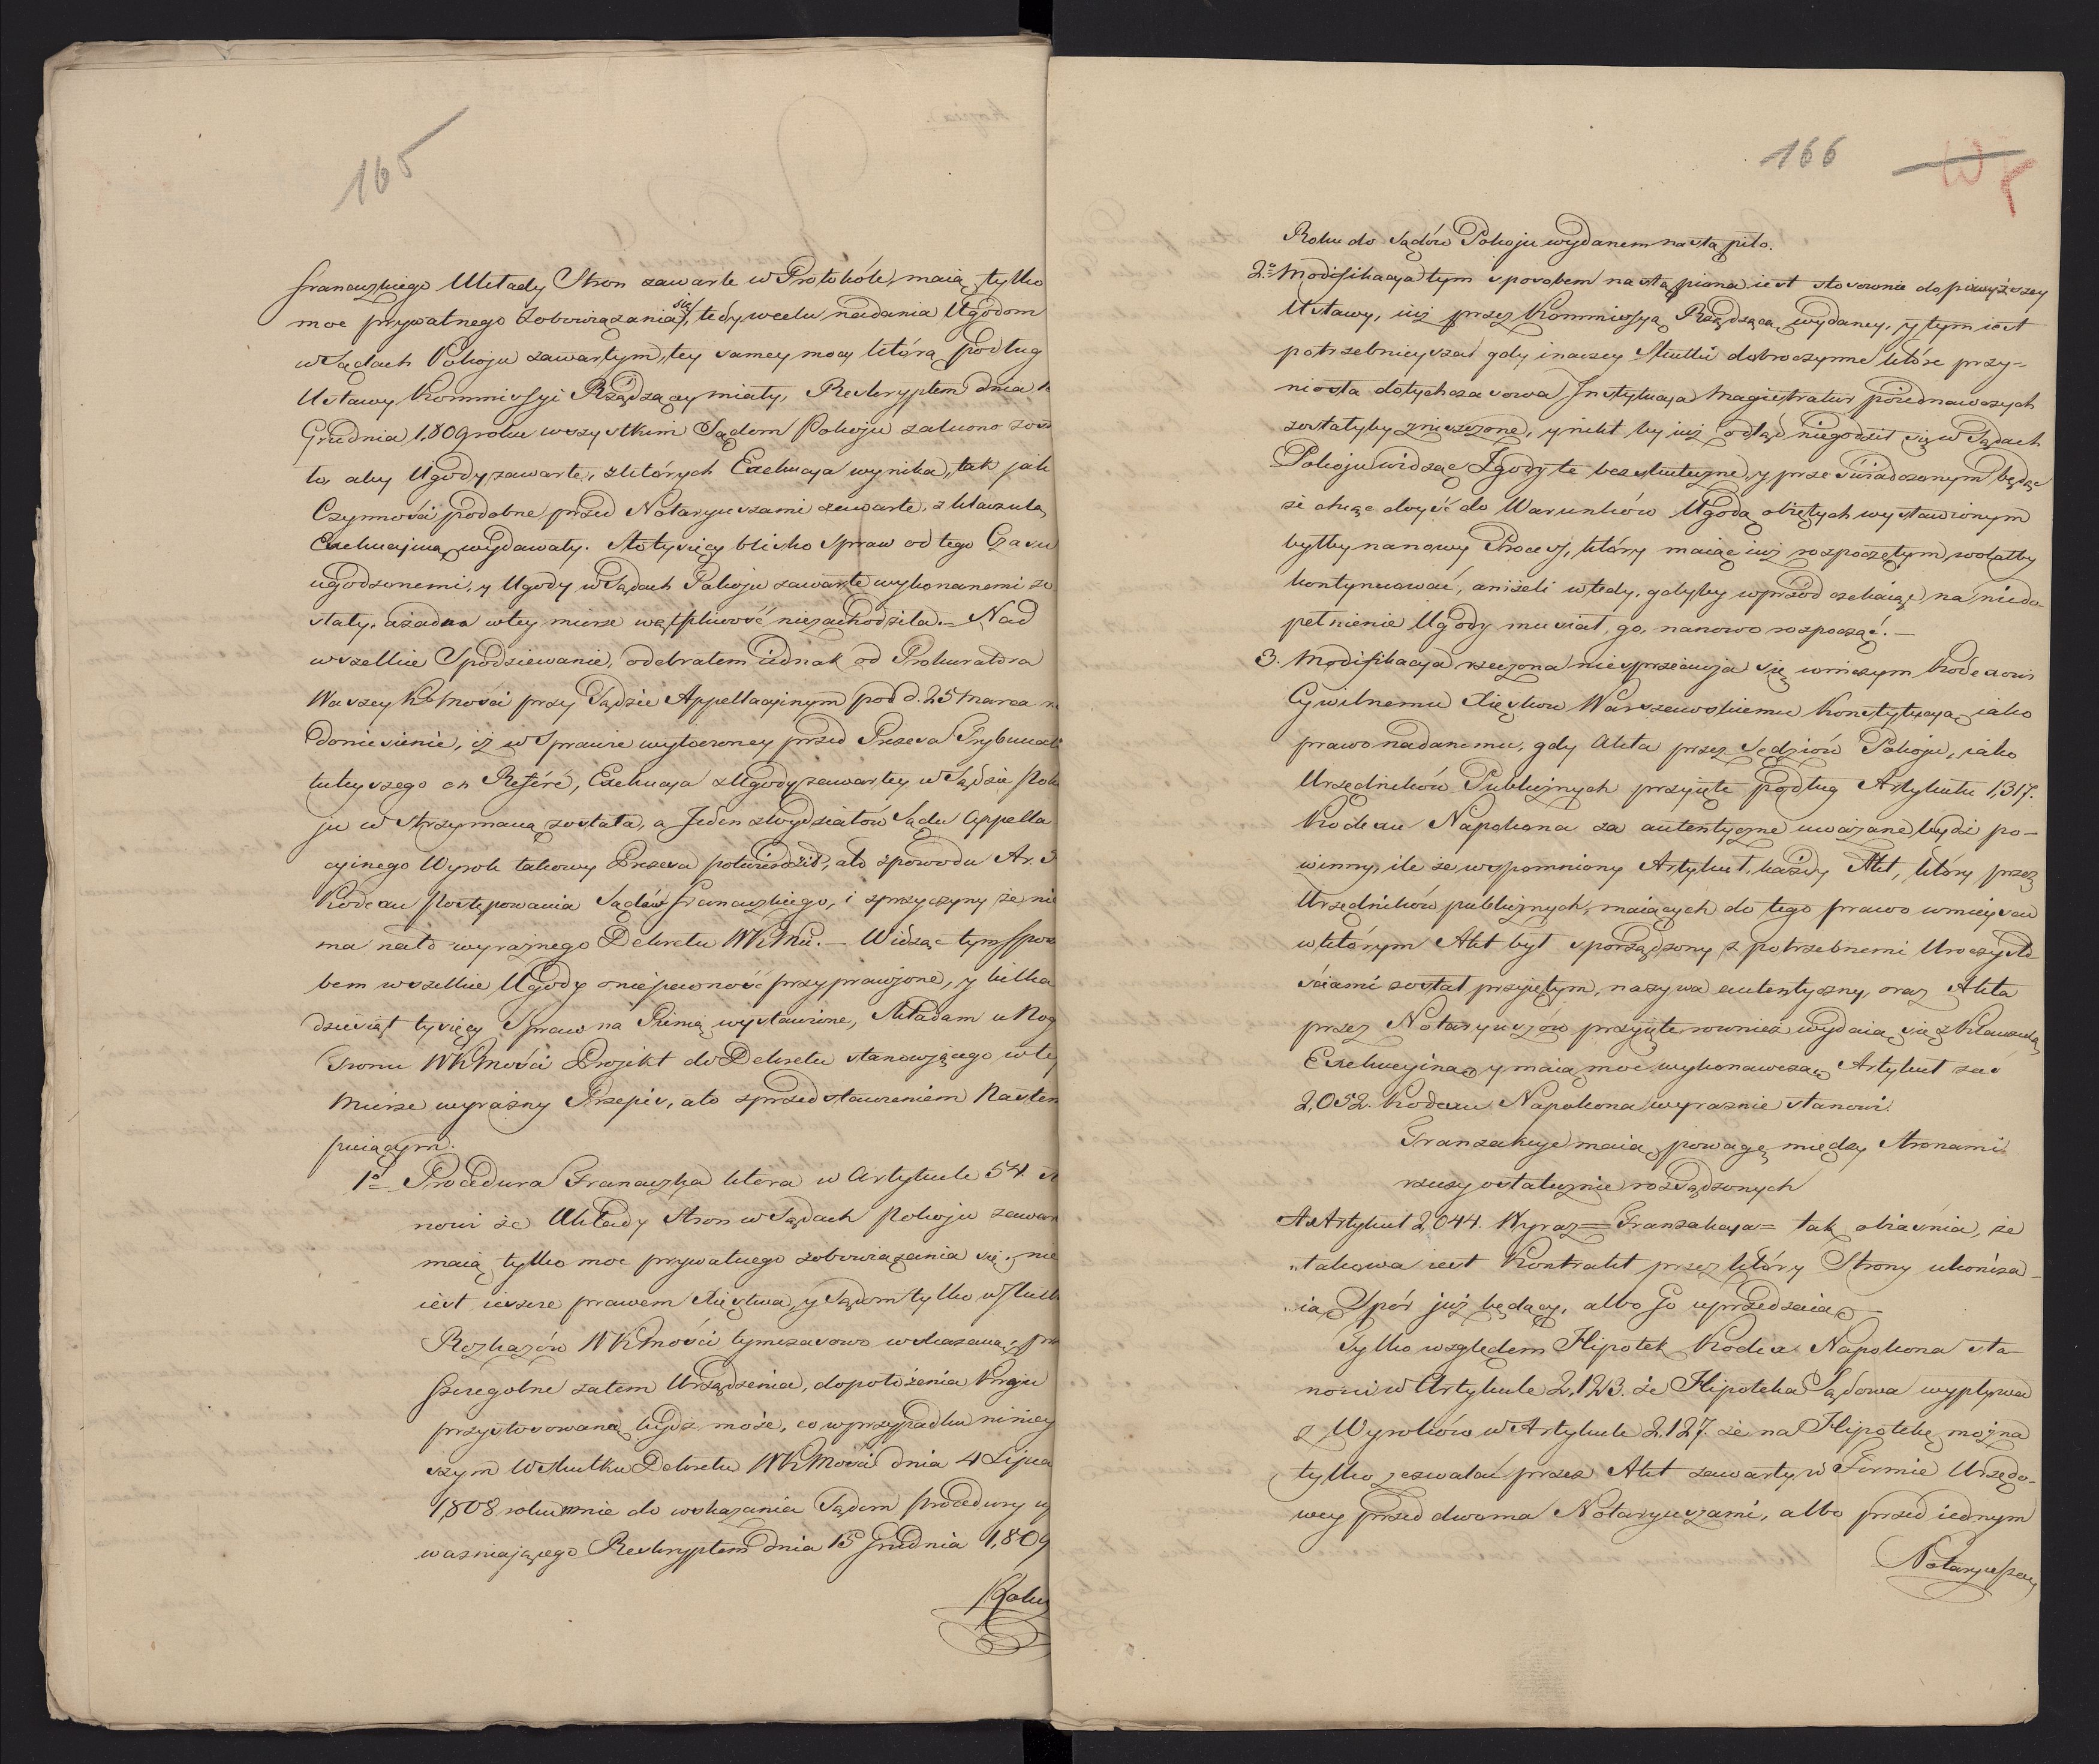 165
francuzkiego Układy Stron zawarte w Protokóle, maią tylko
moc prywatnego zobowiązania się, tedy wcelu nadania Ugodom
w Sądach Pokoju zawartym, tey samey mocy którą podług
Ustawy Kommissyi Rządzącey miały, Reskryptem dnia
Grudnia 1,809 roku wszystkim Sądom Pokoju zalecono zost
to, aby Ugody zawarte, z których Exekucya wynika, tak jak
Czynności podobne przed Notaryuszami zawarte, z klauzulą
Exekucyiną wydawały. Sto tysięcy blisko Spraw od tego Czasu
ugodzonemi, y Ugody w Sądach Pokoju zawarte wykonanemi zo
stały, a żadna w tey mierze wątpliwość niezachodziła. Nad
wszelkie Spodziewanie, odebrałem iednak od Prokuratora
Waszey KMości przy Sądzie Appellacyinym pod d. 25 Marca
doniesienie, iż w Sprawie wytoczoney przed Prezesa Trybunał
tuteyszego en Référé, Exekucya z Ugody zawartey w Sądzie Poko
ju wstrzymaną została, a Jeden z Wydziałów Sądu Appella
cyinego Wyrok takowy Prezesa potwierdził, a to z powodu Ar.
Kodexu Postępowania Sądów francuzkiego, i z przyczyny że nie
ma na to wyraznego Dekretu WKMci. — Widząc tym spoz
bem wszelkie Ugody o niepewność przyprawione, y kilka
dziesiąt tysięcy Spraw na Pienią wystawione, Składam u Nog
Tronu WKMości Projekt do Dekretu stanowiącego w tey
Mierze wyraźny Przepis, a to z przedstawieniem Nastem
puiącym.
1º Procedura Francuzka która w Artykule 54
nowi że Układy Stron w Sądach Pokoju zawar
maią tylko moc prywatnego zobowiązania się, nie
iest ieszcze prawem Xięstwa, y Sądom tylko w skutk
Rozkazów WKMości tymczasowo wskazaną,
szczegolne zatem Urządzenia, do położenia Kraju
przystosowaną bydź może, co w przypadku niniey
szym W skutku Dekretu WKMości dnia 4 Lipca
1,808 roku mnie do wskazania Sądom procedury u
ważniającego Reskryptem dnia 15 Grudnia 1,809
Roku
166
Roku do Sądów Pokoju wydanem nastąpiło.
2º Modifikacya tym sposobem nastąpiona iest stosownie do powyższey
Ustawy, iuż przez Kommissyą Rządzącą wydaney, y tym iest
potrzebnieysza gdy inaczey Skutki dobroczynne które przy-
niosła dotychczasowa Instytucya Magistratur poiednawczych
zostałyby zniszczone, y nikt by iuż odtąd niegodził się w Sądach
Pokoju widząc Zgody te bezskuteczne, y przeświadczonym będąc
że chcąc doyść do Warunków Ugodą obiętych wystawionym
byłby na nowy Process, który maiąc iuż rozpoczętym, wolałby
kontynuować, aniżeli w tedy, gdyby wprzod czekaiąc na niedo-
pełnienie Ugody musiał go nanowo rozpocząć. —
3. Modifikacya rzeczona niesprzeciwia się w niczym Kodexowi
Cywilnemu Xięstwu Warszawskiemu Konstytucyą iako
prawo nadanemu, gdy Akta przez Sędziów Pokoju, iako
Urzędników Publicznych przyięte podług Artykułu 1,317.
Kodexu Napoleona za autentyczne uważane bydź po-
winny, ile że wspomniony Artykuł, każdy Akt, który przez
Urzędników publicznych, maiących do tego prawo w mieyscu
w którym Akt był sporządzony z potrzebnemi Uroczysto-
ściami został przyiętym, nazywa autentyczny, oraz Akta
przez Notaryuszów przyięte rownież wydaią się z Klauzulą
Exekucyiną y maią moc wykonawczą, Artykuł zaś
2,052. Kodexu Napoleona wyraznie stanowi.
Tranzakcye maią powagę między Stronami
rzeczy ostatecznie rozsądzonych
A Artykuł 2,044. Wyraz = Tranzakcya = tak obiaśnia, że
„takowa iest Kontrakt przez który Strony ukończa-
„ią Spór już będący, albo go uprzedzaią —
Tylko względem Hipotek Kodex Napoleona sta-
nowi w Artykule 2,123. że Hipoteka Sądowa wypływa
z Wyroków w Artykule 2,127. że na Hipotekę można
tylko zezwalać przez Akt zawarty w Formie Urzędo-
wey przed dwoma Notaryuszami, albo przed iednym
Notaryuszem